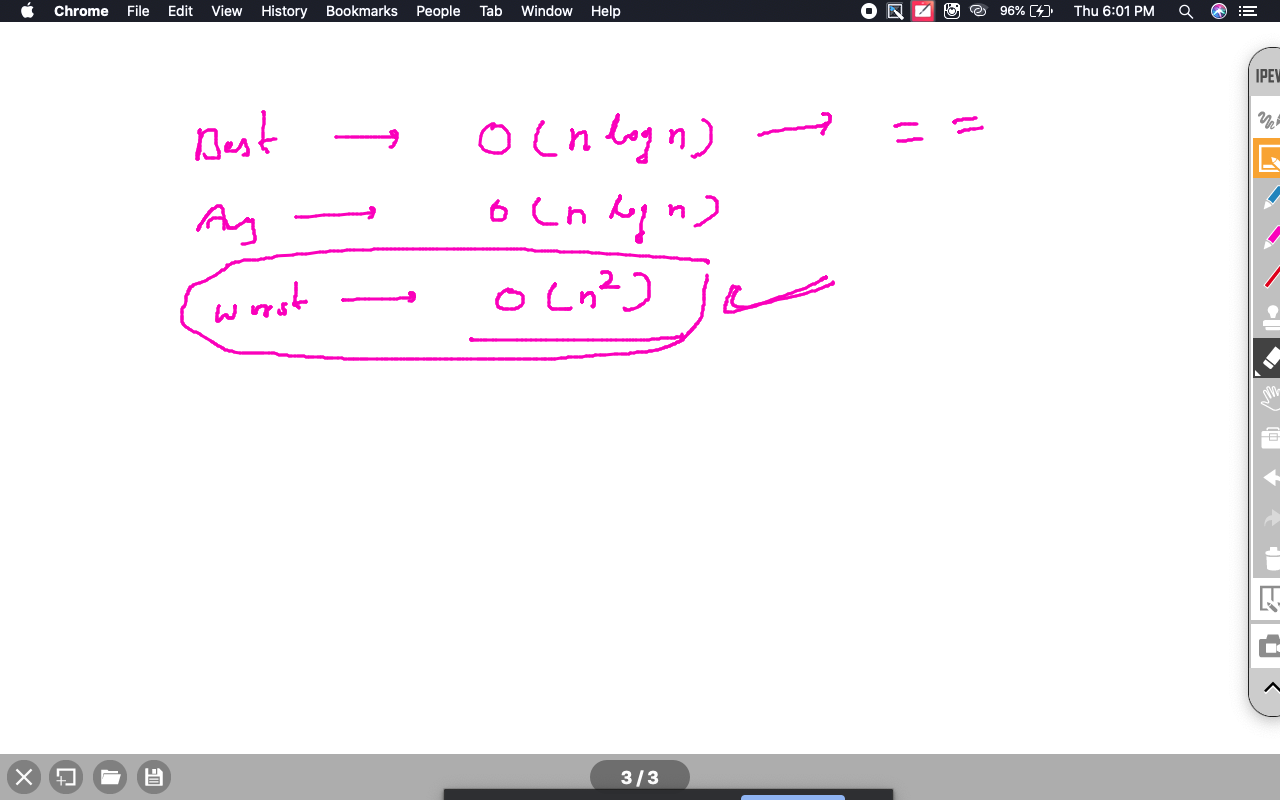 Chrome File Edit View History Bookmarks People Tab Window Help 96% Thu 6:01 PM
IPEV
Best → O(n log n) → = =
Avg → O(n log n)
Worst → O(n²)
3/3